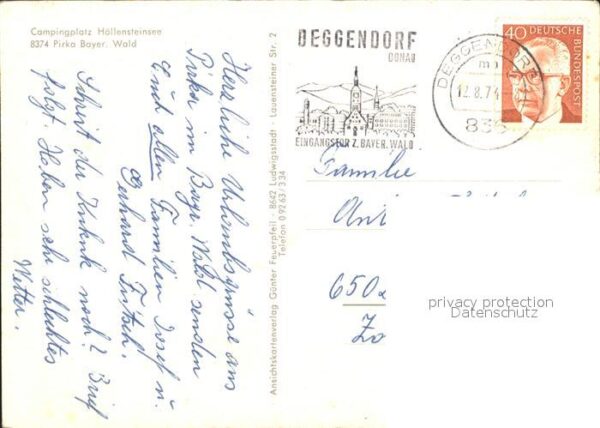 Campingplatz Höllensteinsee
8374 Pirka Bayer. Wald
Herzliche Urlaubsgrüsse aus
Pirka im Bayr. Wald senden
Euch allen Familien Josef u.
Gerhard Fritsch.
Schreit der Kuckuck noch? Brief
folgt. Haben sehr schlechtes
Wetter.
Ansichtskartenverlag Günter Feuerpfeil · 8642 Ludwigsstadt · Lauensteiner Str. 2
Telefon 0 92 63/3 34
DEGGENDORF
DONAU
EINGANGSTOR Z. BAYER. WALD
DEGGENDORF
12.8.74
40
DEUTSCHE
BUNDESPOST
Familie
650
privacy protection
Datenschutz